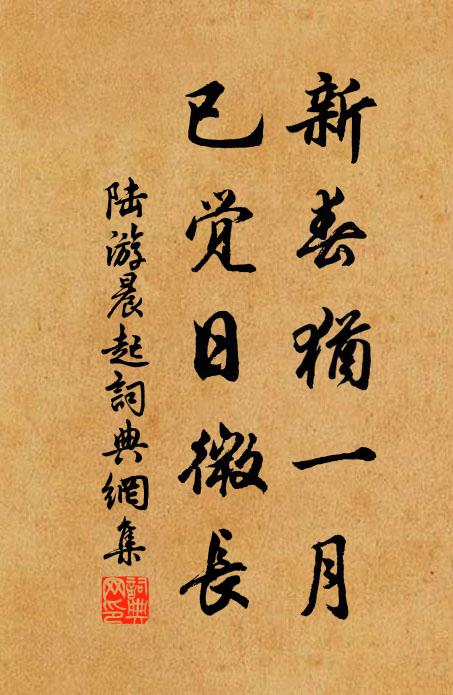 新春猶一月
已觉日微長
陆游晨起詞典網集
詞典网印